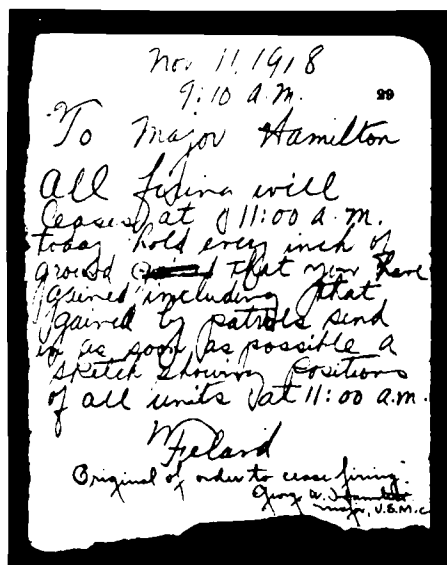 Nov 11, 1918
9:10 a.m.
29
To Major Hamilton
All firing will
cease at 11:00 a.m.
today hold every inch of
ground that you have
gained including that
gained by patrols send
in as soon as possible a
sketch showing positions
of all units at 11:00 a.m.
Feland
Original of order to cease firing.
George A. Hamilton
Major, U.S.M.C.